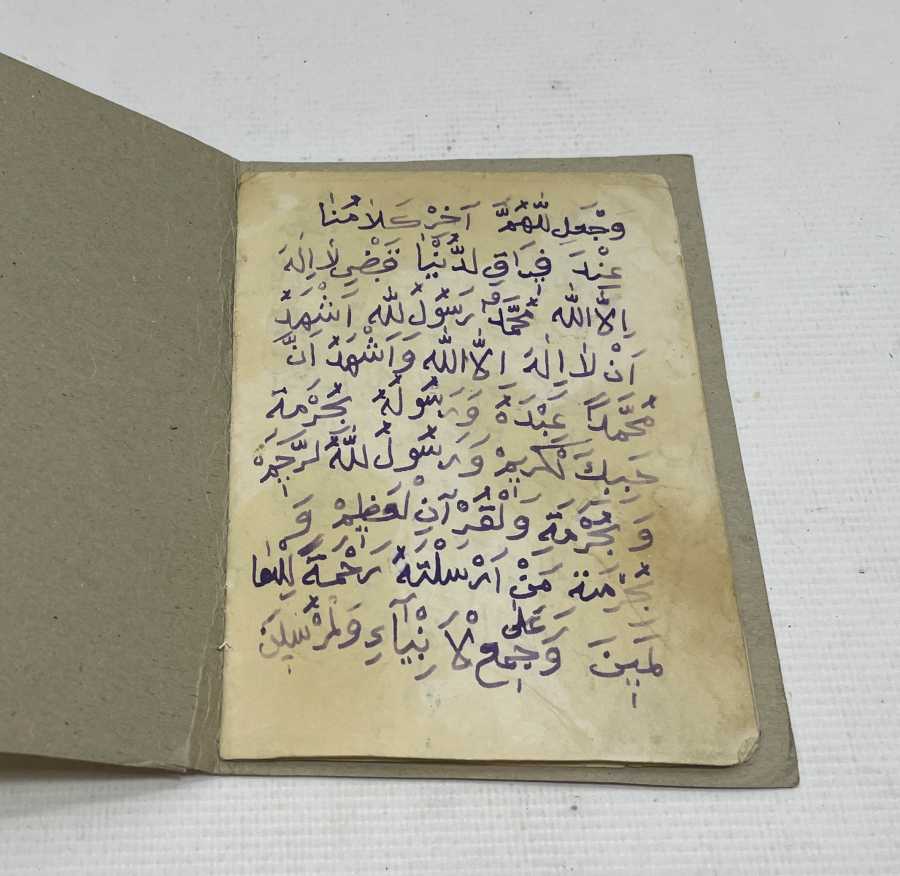 وَجْعَلِ للّٰهُمَّ اَخِرْ كَلاَمُنٰا
عِنْدَ فِرَاقِ لدُّنْيٰا نَفْضِي لٰا اِلٰهَ
اِلاَّ اللّٰه مُحَمَّدٌ رَسُولُ للّٰه اَشْهَدُ
اَنْ لٰا اِلٰهَ اِلاَّ اللّٰه وَاَشْهَدُ اَنَّ
مُحَمَّداً عَبْدَهُ وَرَسُولُهُ بِحُرْمَة
حَبِبِكَ لْكَرِيمْ وَرَسُولُ للّٰهُ لرَّحِمْ
وَ بِحُرْمَةِ وَلْقُرْآنِ لْعَظِيمْ وَ
بِحُرْمَتة مَنْ اَرْسَلْتَهُ رَحْمَةً لِلْعٰا
لَمِينَ وَ عَلٰى جَمِعِ لْاَنْبِيٰآءِ وَلْمُرْسَلِينَ